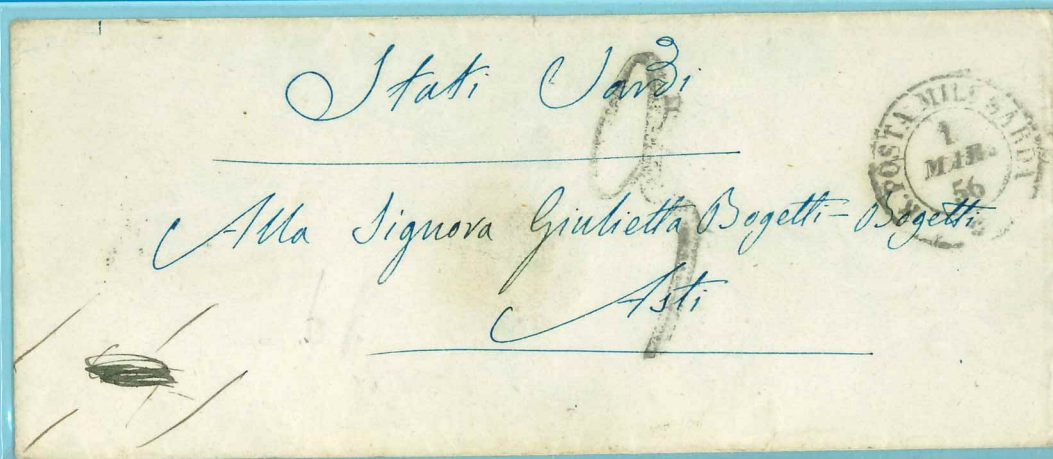 Stati Sardi
R. POSTA MILI. SARDI
1
MAR.
56
Alla Signora Giulietta Bogetti-Bogetti
Asti